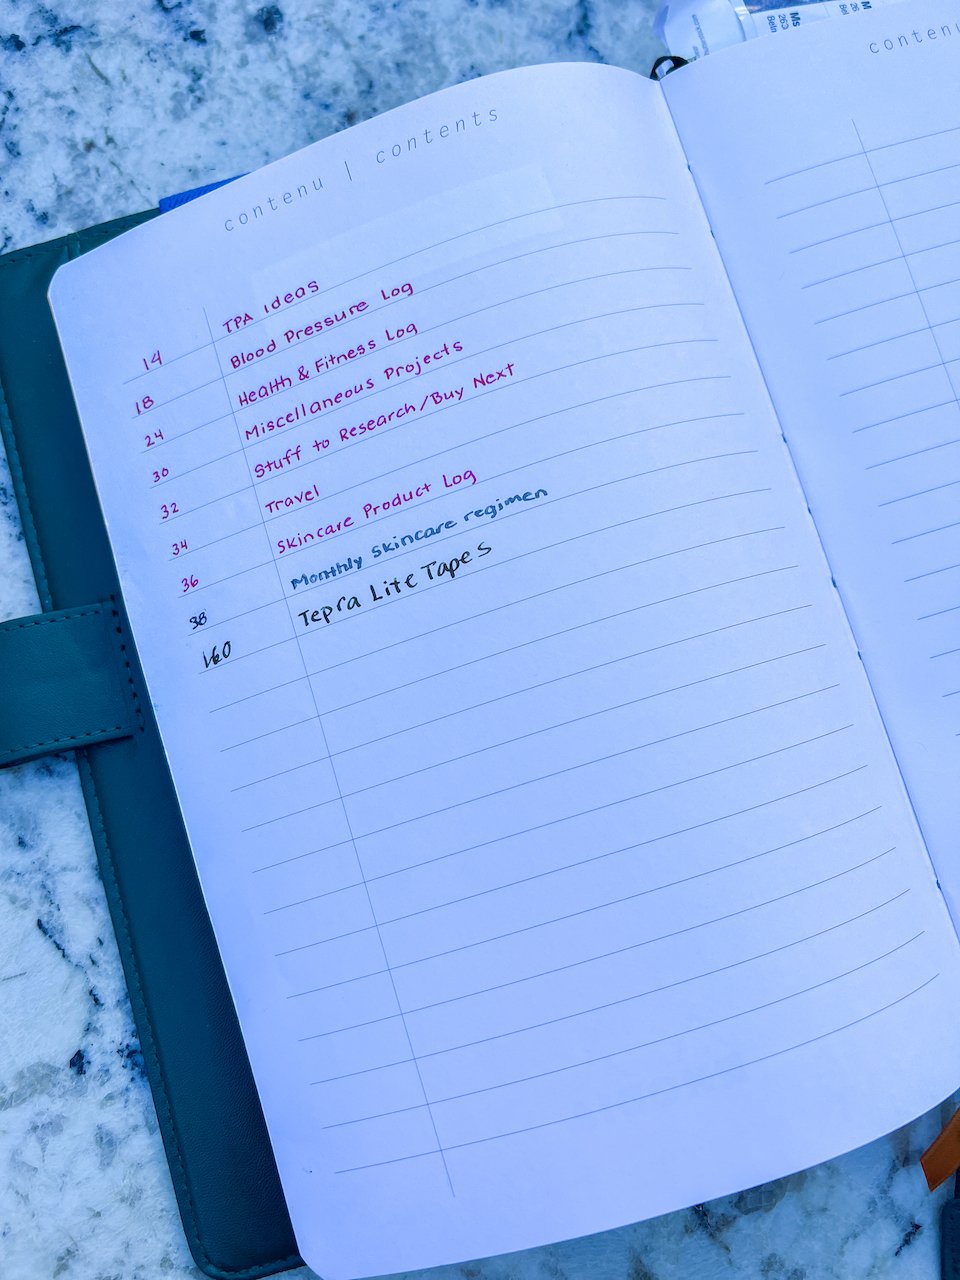 contenu | contents
14 TPA Ideas
18 Blood Pressure Log
24 Health & Fitness Log
30 Miscellaneous Projects
32 Stuff to Research/Buy Next
34 Travel
36 Skincare Product Log
38 Monthly skincare regimen
160 Tepra Lite Tapes
contenu
Ms